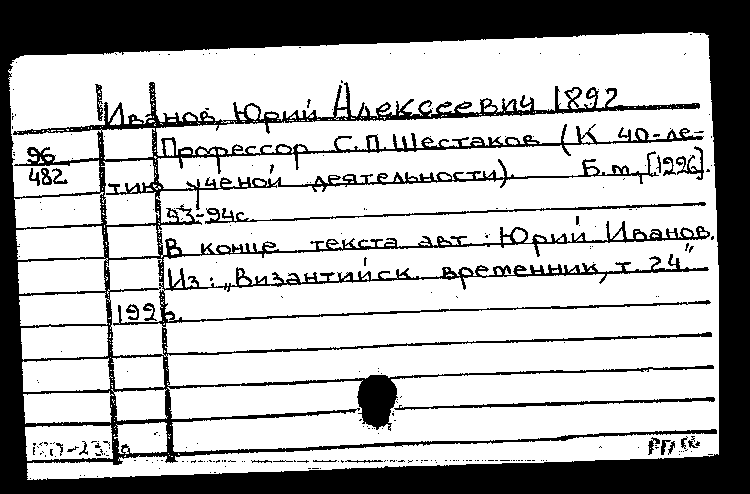 Иванов, Юрий Алексеевич 1892
96
482
Профессор С.П.Шестаков (К 40-ле-
тию ученой деятельности). Б.м.,[1926].
93-94с.
В конце текста авт.: Юрий Иванов.
Из: „Византийск. временник, т. 24."
1926.